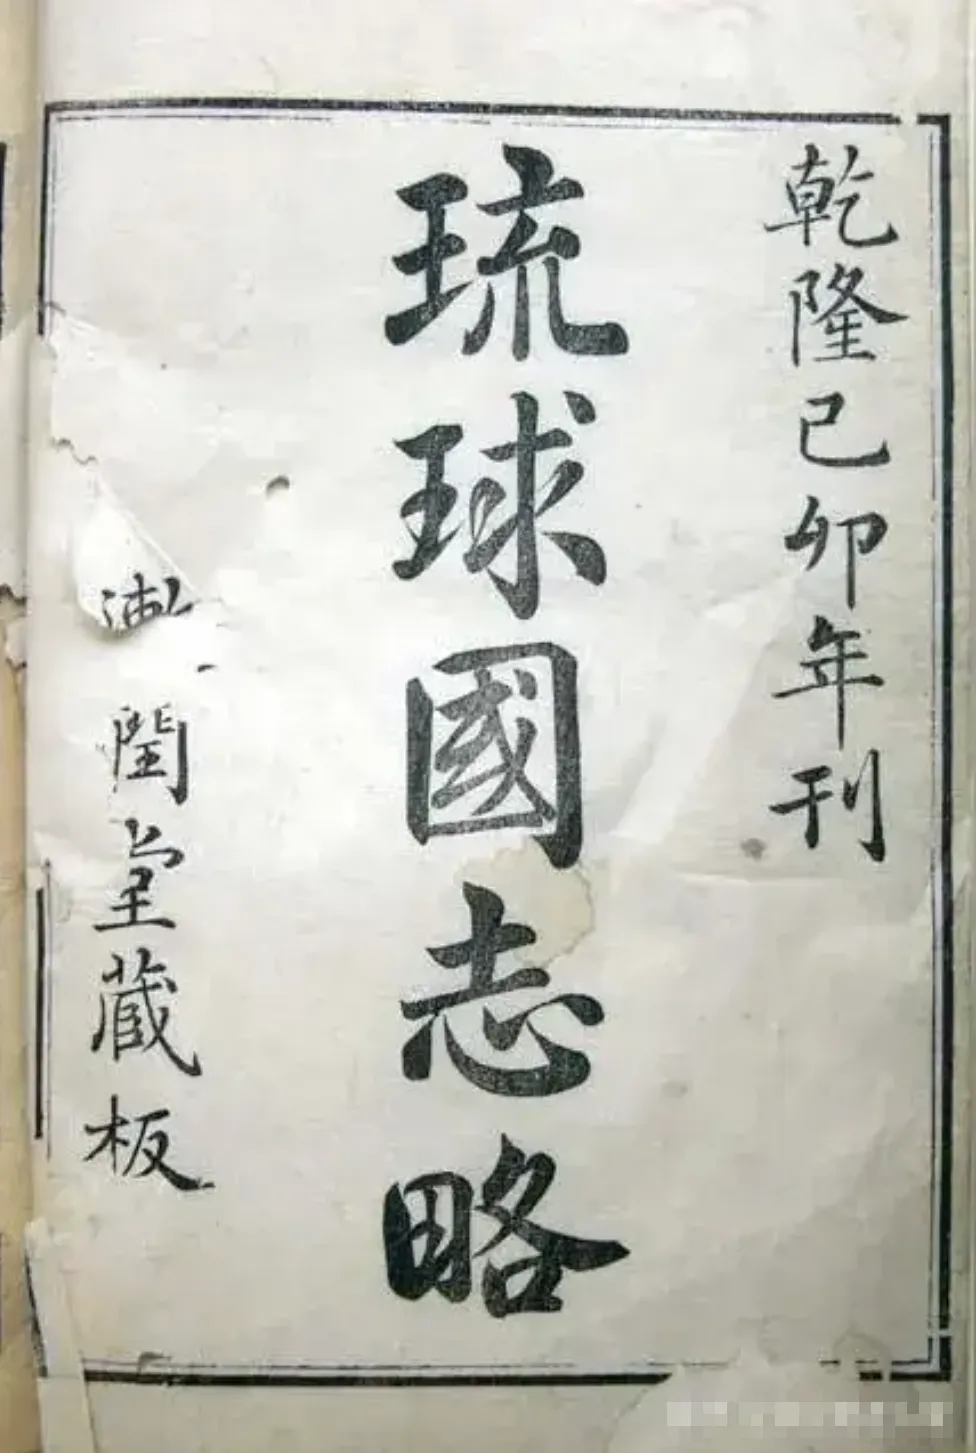 乾隆己卯年刊
琉球國志略
漱閏堂蔵板